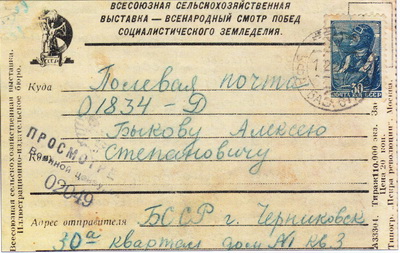 ВСЕСОЮЗНАЯ СЕЛЬСКОХОЗЯЙСТВЕННАЯ
ВЫСТАВКА — ВСЕНАРОДНЫЙ СМОТР ПОБЕД
СОЦИАЛИСТИЧЕСКОГО ЗЕМЛЕДЕЛИЯ.
30
ПОЧТА СССР
Куда Полевая почта
01834-Д
Быкову Алексею
Кому Степановичу
ПРОСМОТРЕНО
Военной
02049
Адрес отправителя БССР г. Черниковск
30а квартал дом №1 кв 3
Всесоюзная сельскохозяйственная выставка.
Иллюстрационно-издательское бюро.
Тираж 110.000 экз.
Цена 20 коп.
А33301.
Типогр. „Искра революции". Москва